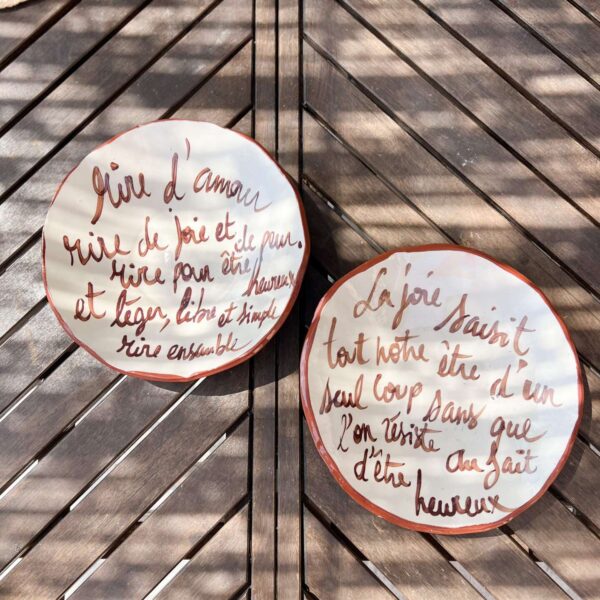 rire d'amour
rire de joie et de peur.
rire pour être heureux
et léger, libre et simple
rire ensemble
La joie saisit
tout notre être d'un
seul coup sans que
l'on résiste au fait
d'être heureux